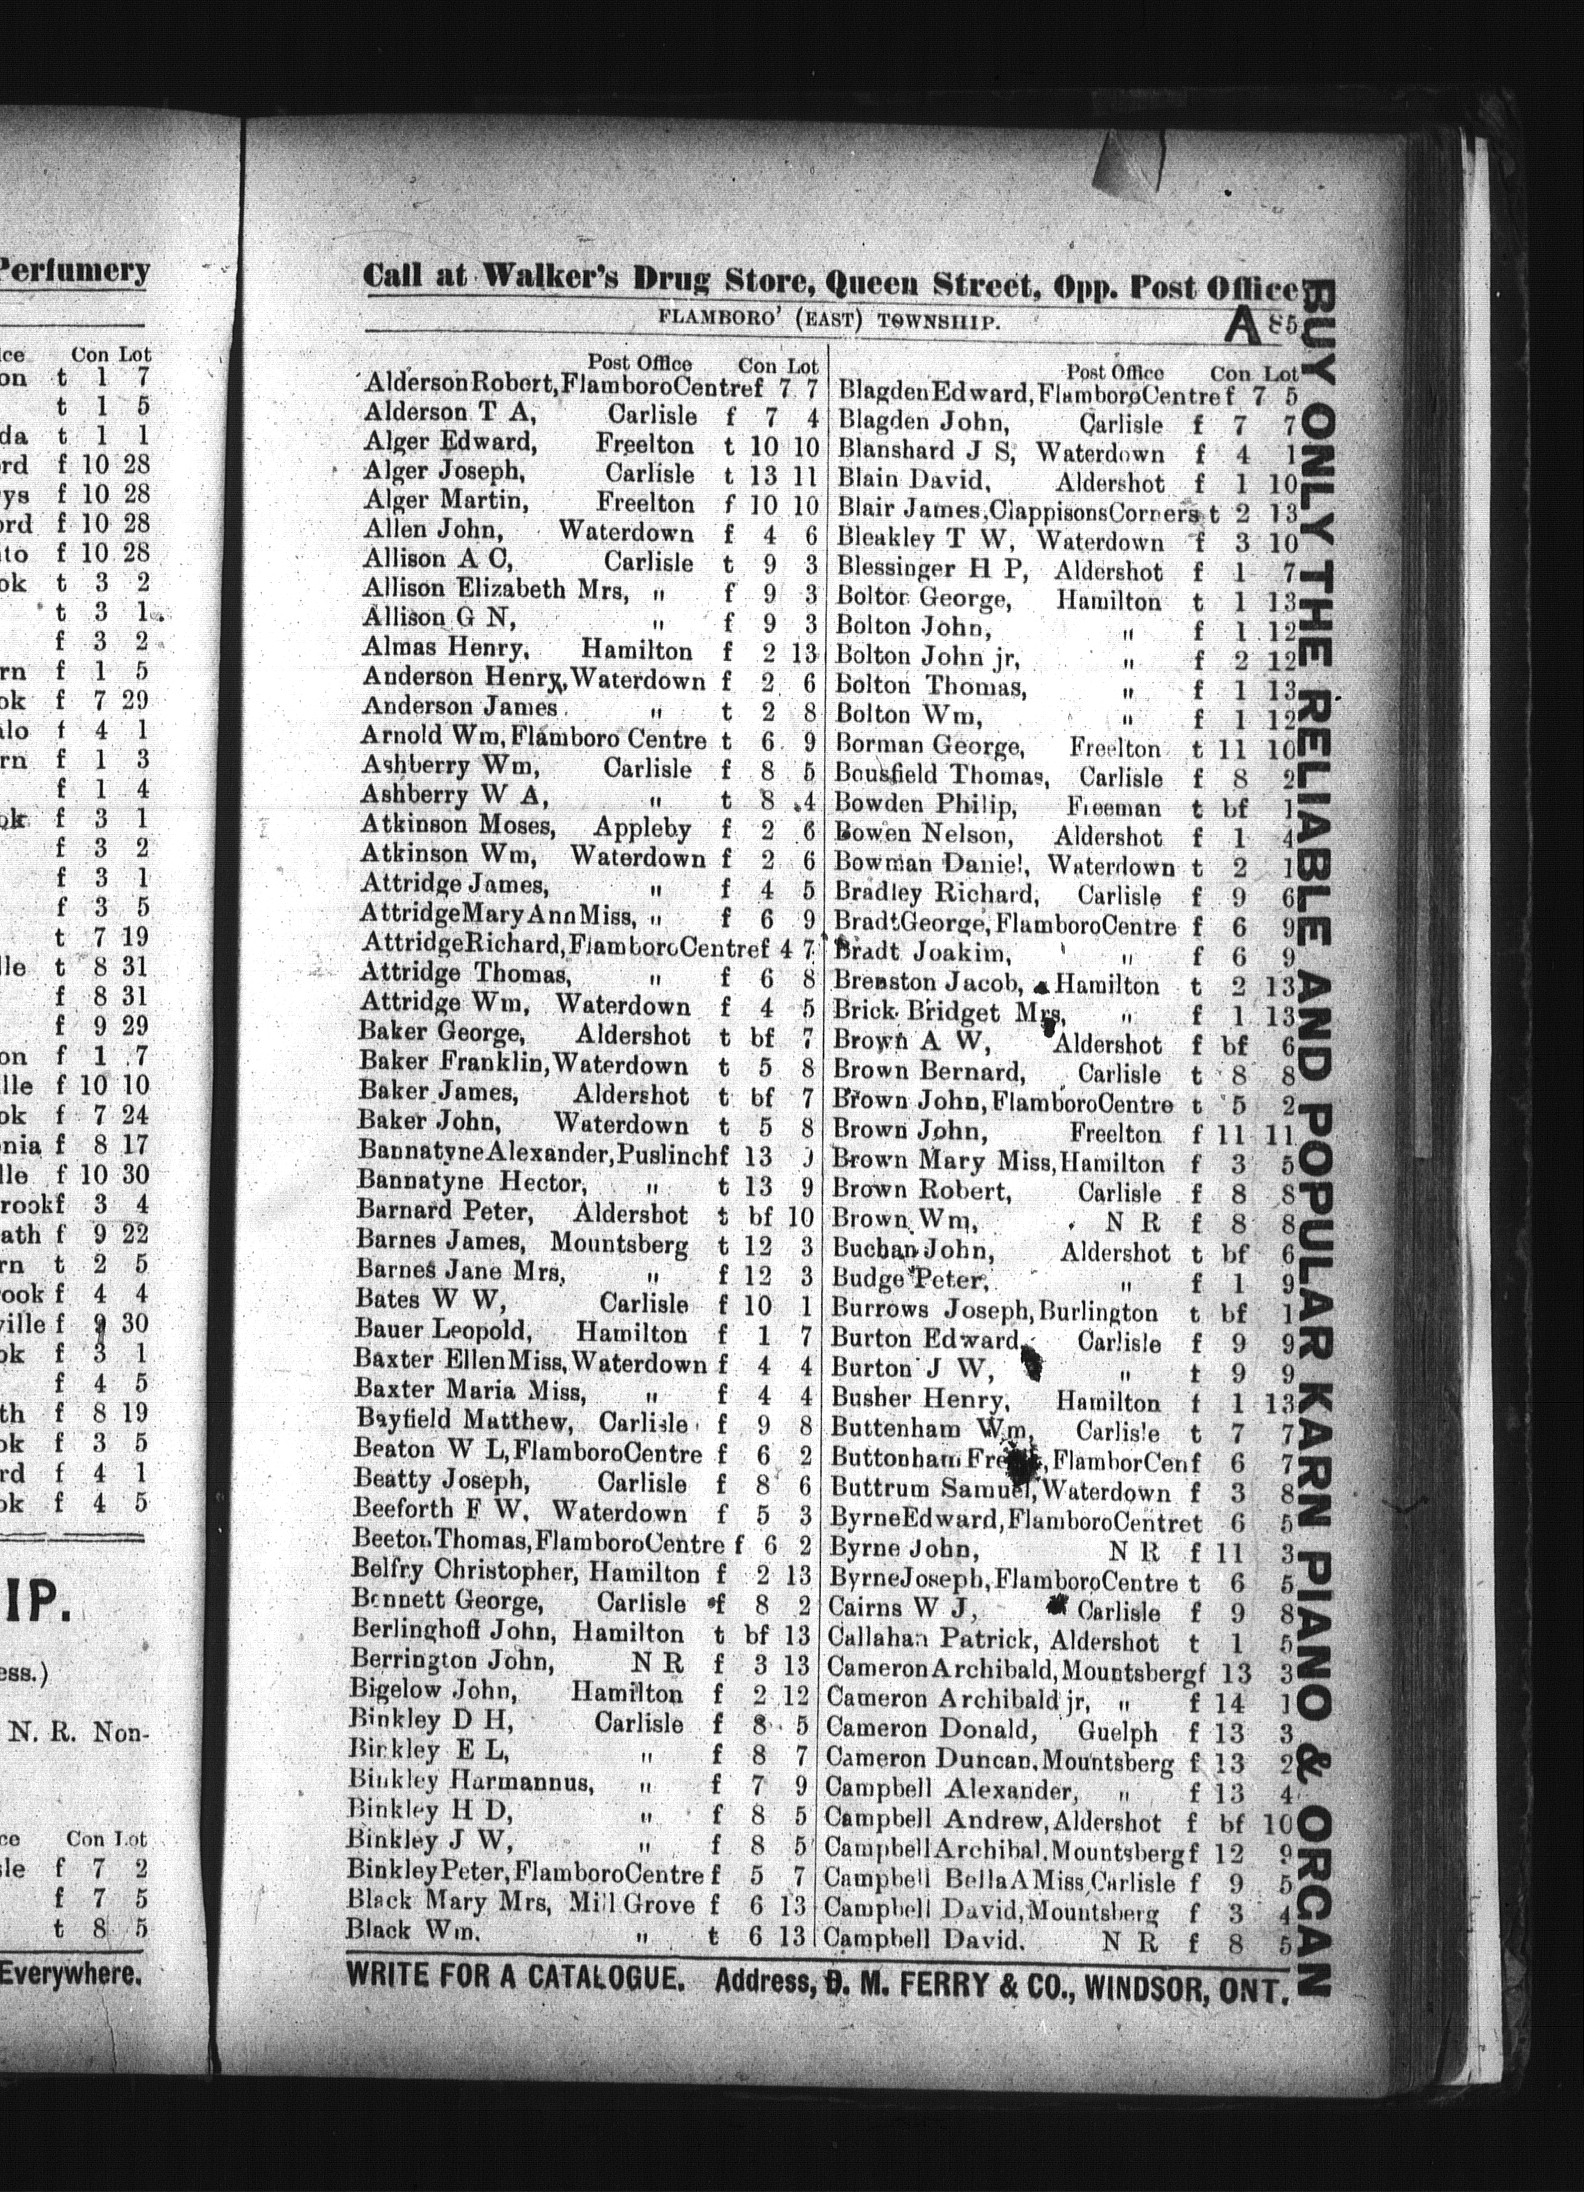 Perfumery
Con Lot
t 1 7
t 1 5
t 1 1
f 10 28
f 10 28
f 10 28
f 10 28
t 3 2
t 3 1
f 3 2
f 1 5
f 7 29
f 4 1
f 1 3
f 1 4
f 3 1
f 3 2
f 3 1
f 3 5
t 7 19
t 8 31
f 8 31
f 9 29
f 1 7
f 10 10
f 7 24
f 8 17
f 10 30
f 3 4
f 9 22
t 2 5
f 4 4
f 9 30
f 3 1
f 4 5
f 8 19
f 3 5
f 4 1
f 4 5
IP.
ess.)
N. R. Non-
Con Lot
f 7 2
f 7 5
t 8 5
Everywhere.
Call at Walker's Drug Store, Queen Street, Opp. Post Office
FLAMBORO' (EAST) TOWNSHIP. A 85
Post Office Con Lot
Alderson Robert, Flamboro Centre f 7 7
Alderson T A, Carlisle f 7 4
Alger Edward, Freelton t 10 10
Alger Joseph, Carlisle t 13 11
Alger Martin, Freelton f 10 10
Allen John, Waterdown f 4 6
Allison A C, Carlisle t 9 3
Allison Elizabeth Mrs, " f 9 3
Allison G N, " f 9 3
Almas Henry, Hamilton f 2 13
Anderson Henry, Waterdown f 2 6
Anderson James " t 2 8
Arnold Wm, Flamboro Centre t 6 9
Ashberry Wm, Carlisle f 8 5
Ashberry W A, " t 8 4
Atkinson Moses, Appleby f 2 6
Atkinson Wm, Waterdown f 2 6
Attridge James, " f 4 5
Attridge Mary Ann Miss, " f 6 9
Attridge Richard, Flamboro Centre f 4 7
Attridge Thomas, " f 6 8
Attridge Wm, Waterdown f 4 5
Baker George, Aldershot t bf 7
Baker Franklin, Waterdown t 5 8
Baker James, Aldershot t bf 7
Baker John, Waterdown t 5 8
Bannatyne Alexander, Puslinch f 13
Bannatyne Hector, " t 13 9
Barnard Peter, Aldershot t bf 10
Barnes James, Mountsberg t 12 3
Barnes Jane Mrs, " f 12 3
Bates W W, Carlisle f 10 1
Bauer Leopold, Hamilton f 1 7
Baxter Ellen Miss, Waterdown f 4 4
Baxter Maria Miss, " f 4 4
Bayfield Matthew, Carlisle f 9 8
Beaton W L, Flamboro Centre f 6 2
Beatty Joseph, Carlisle f 8 6
Beeforth F W, Waterdown f 5 3
Beeton Thomas, Flamboro Centre f 6 2
Belfry Christopher, Hamilton f 2 13
Bennett George, Carlisle f 8 2
Berlinghoff John, Hamilton t bf 13
Berrington John, N R f 3 13
Bigelow John, Hamilton f 2 12
Binkley D H, Carlisle f 8 5
Binkley E L, " f 8 7
Binkley Harmannus, " f 7 9
Binkley H D, " f 8 5
Binkley J W, " f 8 5
Binkley Peter, Flamboro Centre f 5 7
Black Mary Mrs, Mill Grove f 6 13
Black Wm. " t 6 13
Post Office Con Lot
Blagden Edward, Flamboro Centre f 7 5
Blagden John, Carlisle f 7 7
Blanshard J S, Waterdown f 4 1
Blain David, Aldershot f 1 10
Blair James, Clappisons Corners t 2 13
Bleakley T W, Waterdown f 3 10
Blessinger H P, Aldershot f 1 7
Bolton George, Hamilton t 1 13
Bolton John, " f 1 12
Bolton John jr, " f 2 12
Bolton Thomas, " f 1 13
Bolton Wm, " f 1 12
Borman George, Freelton t 11 10
Bousfield Thomas, Carlisle f 8 2
Bowden Philip, Freeman t bf 1
Bowen Nelson, Aldershot f 1 4
Bowman Daniel, Waterdown t 2 1
Bradley Richard, Carlisle f 9 6
Bradt George, Flamboro Centre f 6 9
Bradt Joakim, " f 6 9
Brenston Jacob, Hamilton t 2 13
Brick Bridget Mrs, " f 1 13
Brown A W, Aldershot f bf 6
Brown Bernard, Carlisle t 8 8
Brown John, Flamboro Centre t 5 2
Brown John, Freelton f 11 11
Brown Mary Miss, Hamilton f 3 5
Brown Robert, Carlisle f 8 8
Brown Wm, N R f 8 8
Buchan John, Aldershot t bf 6
Budge Peter, " f 1 9
Burrows Joseph, Burlington t bf 1
Burton Edward, Carlisle f 9 9
Burton J W, " t 9 9
Busher Henry, Hamilton f 1 13
Buttenham Wm, Carlisle t 7 7
Buttonham , FlamborCen f 6 7
Buttrum Samuel, Waterdown f 3 8
Byrne Edward, Flamboro Centre t 6 5
Byrne John, N R f 11 3
Byrne Joseph, Flamboro Centre t 6 5
Cairns W J, Carlisle f 9 8
Callahan Patrick, Aldershot t 1 5
Cameron Archibald, Mountsberg f 13 3
Cameron Archibald jr, " f 14 1
Cameron Donald, Guelph f 13 3
Cameron Duncan, Mountsberg f 13 2
Campbell Alexander, " f 13 4
Campbell Andrew, Aldershot f bf 10
Campbell Archibal. Mountsberg f 12 9
Campbell Bella A Miss, Carlisle f 9 5
Campbell David, Mountsberg f 3 4
Campbell David. N R f 8 5
WRITE FOR A CATALOGUE. Address, D. M. FERRY & CO., WINDSOR, ONT.
BUY ONLY THE RELIABLE AND POPULAR KARN PIANO & ORGAN